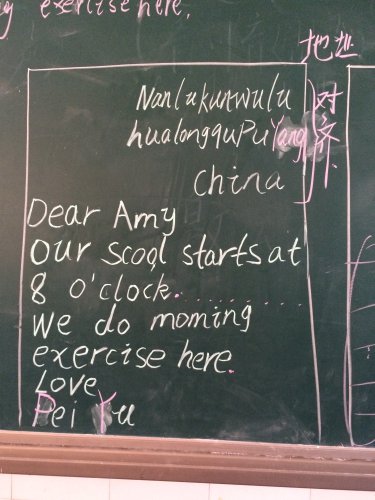 exercise here.
地址
Nanlukunwulu
对齐
hualongquPuYang
China
Dear Amy
Our scool starts at
8 o'clock.
We do moming
exercise here.
Love
Pei Yu